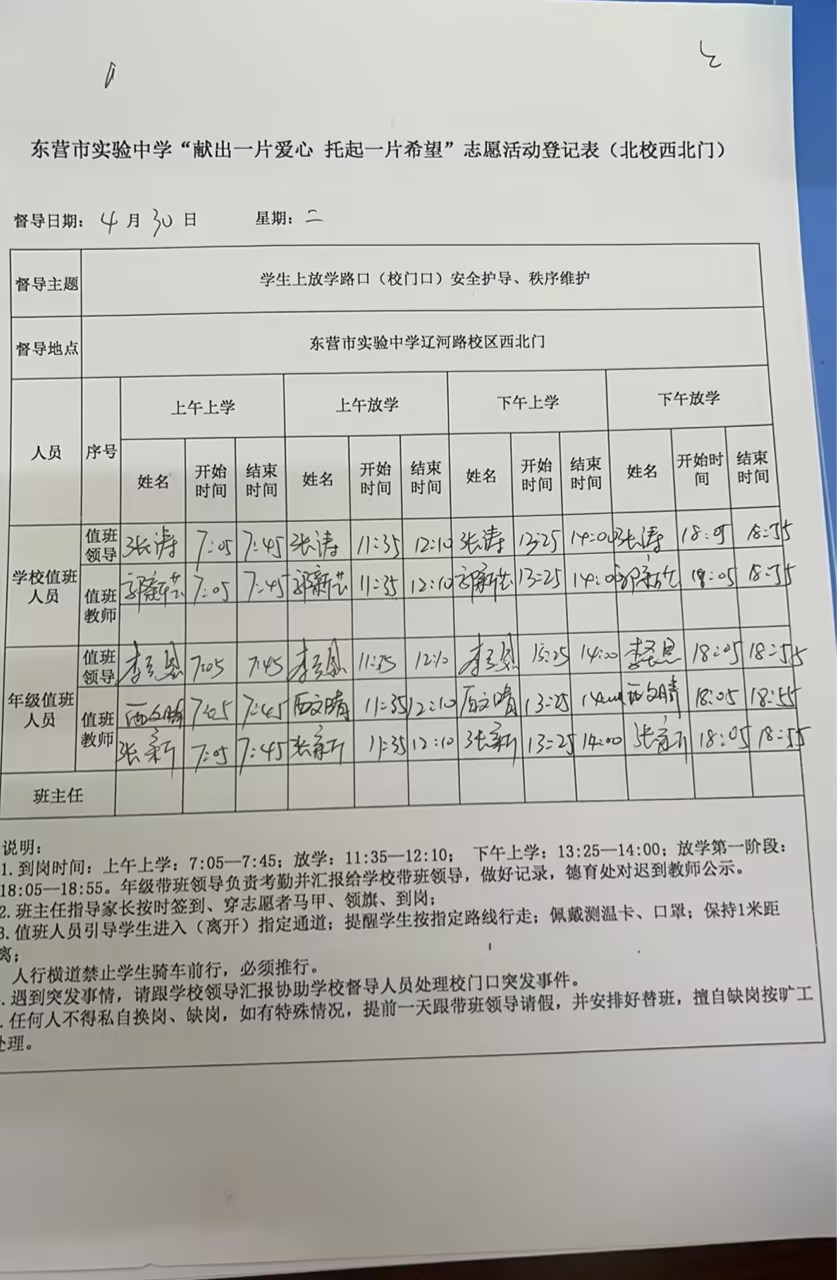 东营市实验中学“献出一片爱心 托起一片希望”志愿活动登记表（北校西北门）
督导日期：4月30日 星期：二
督导主题 学生上放学路口（校门口）安全护导、秩序维护
督导地点 东营市实验中学辽河路校区西北门
人员 序号 上午上学 上午放学 下午上学 下午放学
姓名 开始时间 结束时间 姓名 开始时间 结束时间 姓名 开始时间 结束时间 姓名 开始时间 结束时间
学校值班人员 值班领导 张涛 7:05 7:45 张涛 11:35 12:10 张涛 13:25 14:00 张涛 18:05 18:55
值班教师 郭新芸 7:05 7:45 郭新芸 11:35 12:10 郭新芸 13:25 14:00 郭新芸 18:05 18:55
年级值班人员 值班领导 7:05 7:45 12:10 14:00 18:05 18:55
值班教师 西文晴 7:05 7:45 西文晴 11:35 12:10 西文晴 13:25 14:00 西文晴 18:05 18:55
张新 7:05 7:45 张新 11:35 12:10 张新 13:25 14:00 张新 18:05 18:55
班主任
说明：
1.到岗时间：上午上学：7:05—7:45；放学：11:35—12:10； 下午上学：13:25—14:00；放学第一阶段：
18:05—18:55。年级带班领导负责考勤并汇报给学校带班领导，做好记录，德育处对迟到教师公示。
2.班主任指导家长按时签到、穿志愿者马甲、领旗、到岗；
3.值班人员引导学生进入（离开）指定通道；提醒学生按指定路线行走；佩戴测温卡、口罩；保持1米距
离；
人行横道禁止学生骑车前行，必须推行。
.遇到突发事情，请跟学校领导汇报协助学校督导人员处理校门口突发事件。
.任何人不得私自换岗、缺岗，如有特殊情况，提前一天跟带班领导请假，并安排好替班，擅自缺岗按旷工
处理。